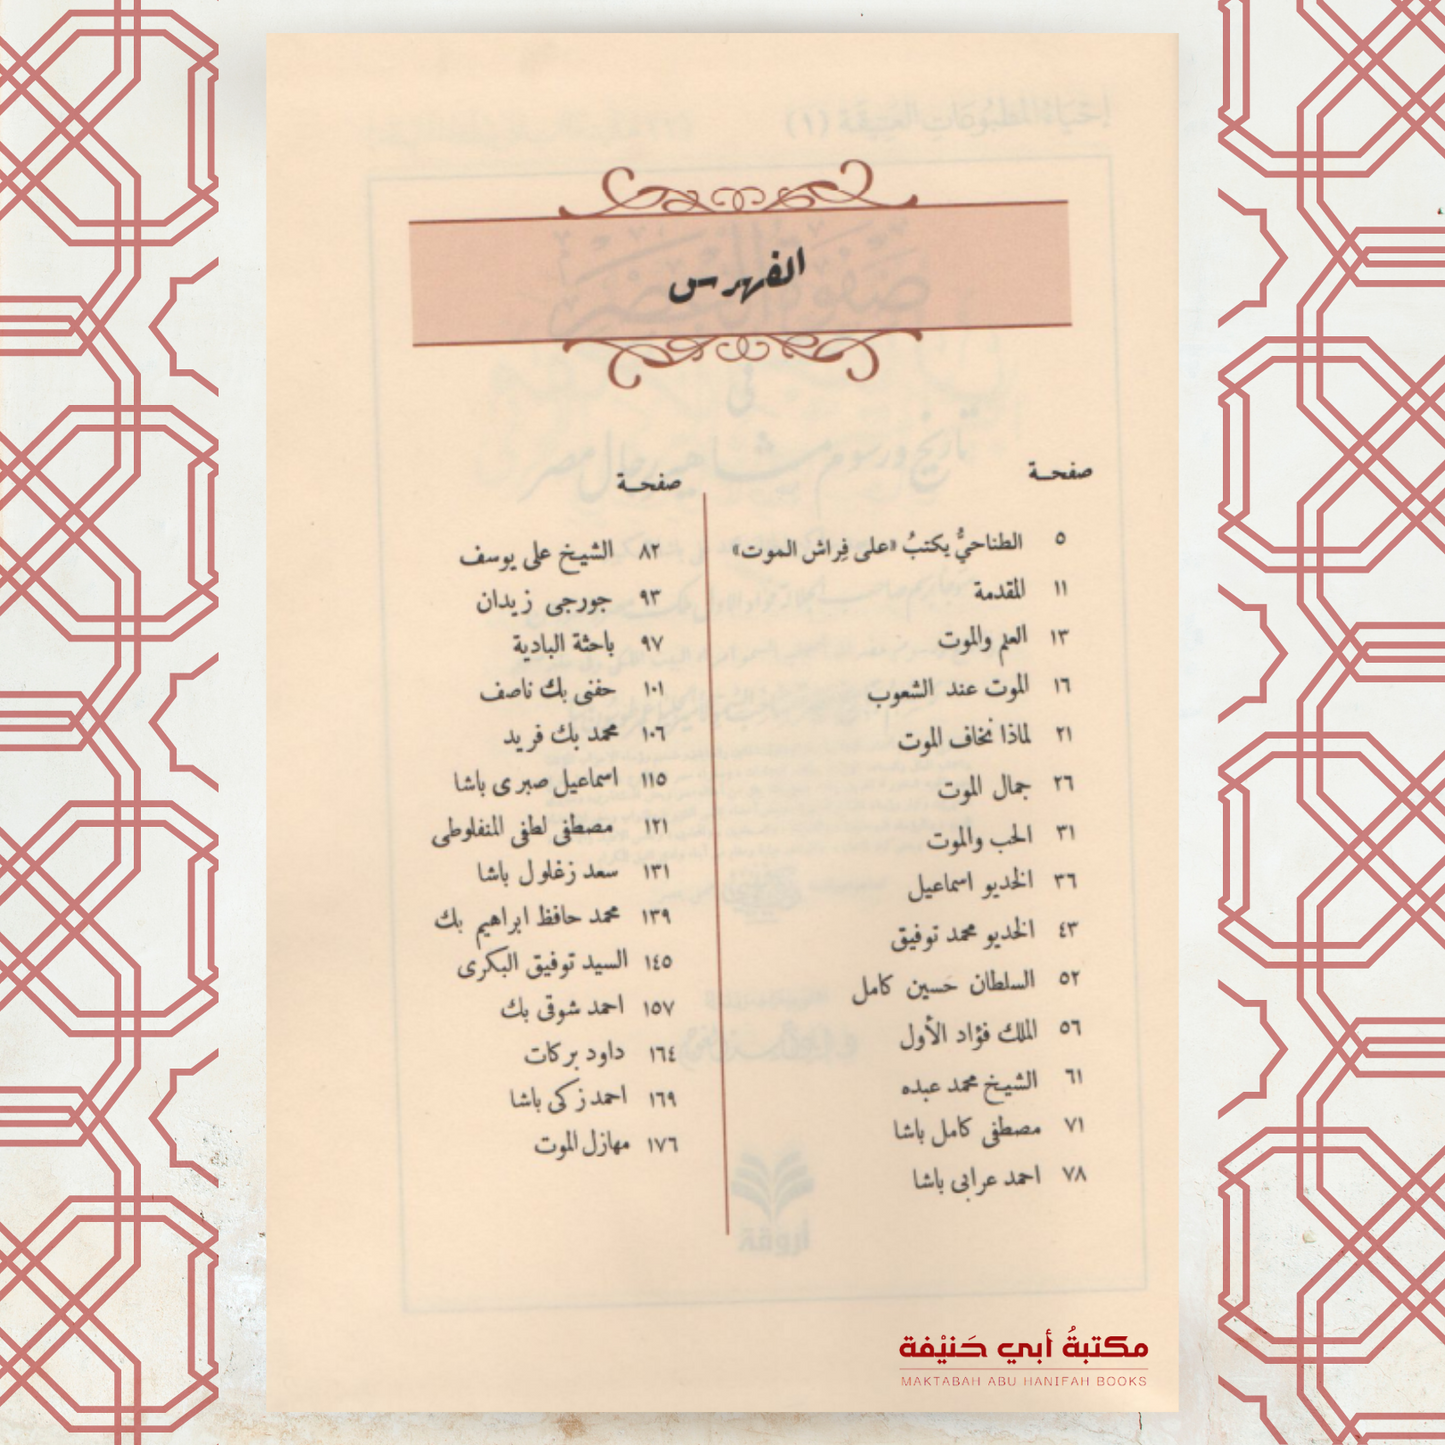 الفهرس
صفحة
٥ الطناحيُّ يكتبُ «على فِراش الموت»
١١ المقدمة
١٣ العلم والموت
١٦ الموت عند الشعوب
٢١ لماذا نخاف الموت
٢٦ جمال الموت
٣١ الحب والموت
٣٦ الخديو اسماعيل
٤٣ الخديو محمد توفيق
٥٢ السلطان حسين كامل
٥٦ الملك فؤاد الأول
٦١ الشيخ محمد عبده
٧١ مصطفى كامل باشا
٧٨ احمد عرابى باشا
صفحة
٨٢ الشيخ على يوسف
٩٣ جورجى زيدان
٩٧ باحثة البادية
١٠١ حفنى بك ناصف
١٠٦ محمد بك فريد
١١٥ اسماعيل صبرى باشا
١٢١ مصطفى لطفى المنفلوطى
١٣١ سعد زغلول باشا
١٣٩ محمد حافظ ابراهيم بك
١٤٥ السيد توفيق البكرى
١٥٧ احمد شوقى بك
١٦٤ داود بركات
١٦٩ احمد زكى باشا
١٧٦ مهازل الموت
مكتبةُ أبي حَنيْفة
MAKTABAH ABU HANIFAH BOOKS